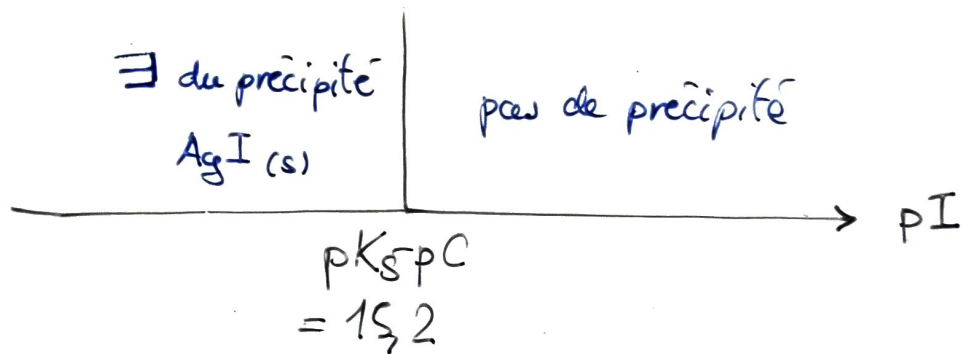 ∃ du précipité
AgI (s)
pas de précipité
pI
pKs-pC
= 15,2